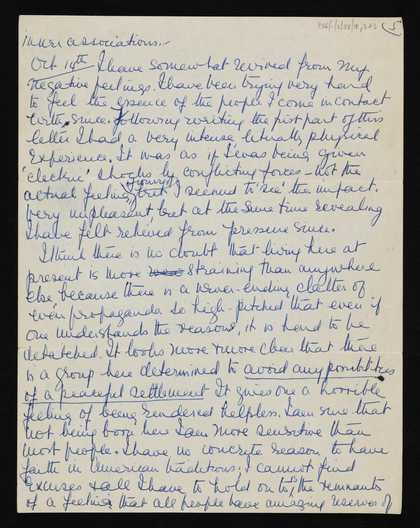 inner associations.-
Oct 19th I have somewhat revived from my
negative feelings. I have been trying very hard
to feel the essence of the people I come in contact
with since. Following writing the first part of this
letter I had a very intense literally physical
experience. It was as if I was being given
'electric' shocks by conflicting forces - not the
actual feeling, but I seemed to 'see' the impact.
Very unpleasant but at the same time revealing
I have felt relieved from pressure since.
I think there is no doubt that living here at
present is more straining than anywhere
else, because there is a never-ending clatter of
even propaganda so high-pitched that even if
one understands the reasons, it is hard to be
detached. It looks more + more clear that there
is a group here determined to avoid any possibilities
of a peaceful settlement. It gives one a horrible
feeling of being rendered helpless. I am sure that
not being born here I am more sensitive than
most people. I have no concrete reason to have
faith in American traditions; I cannot find
excuses + all I have to hold on to, the remnants
of a feeling that all people have amazing reserves of